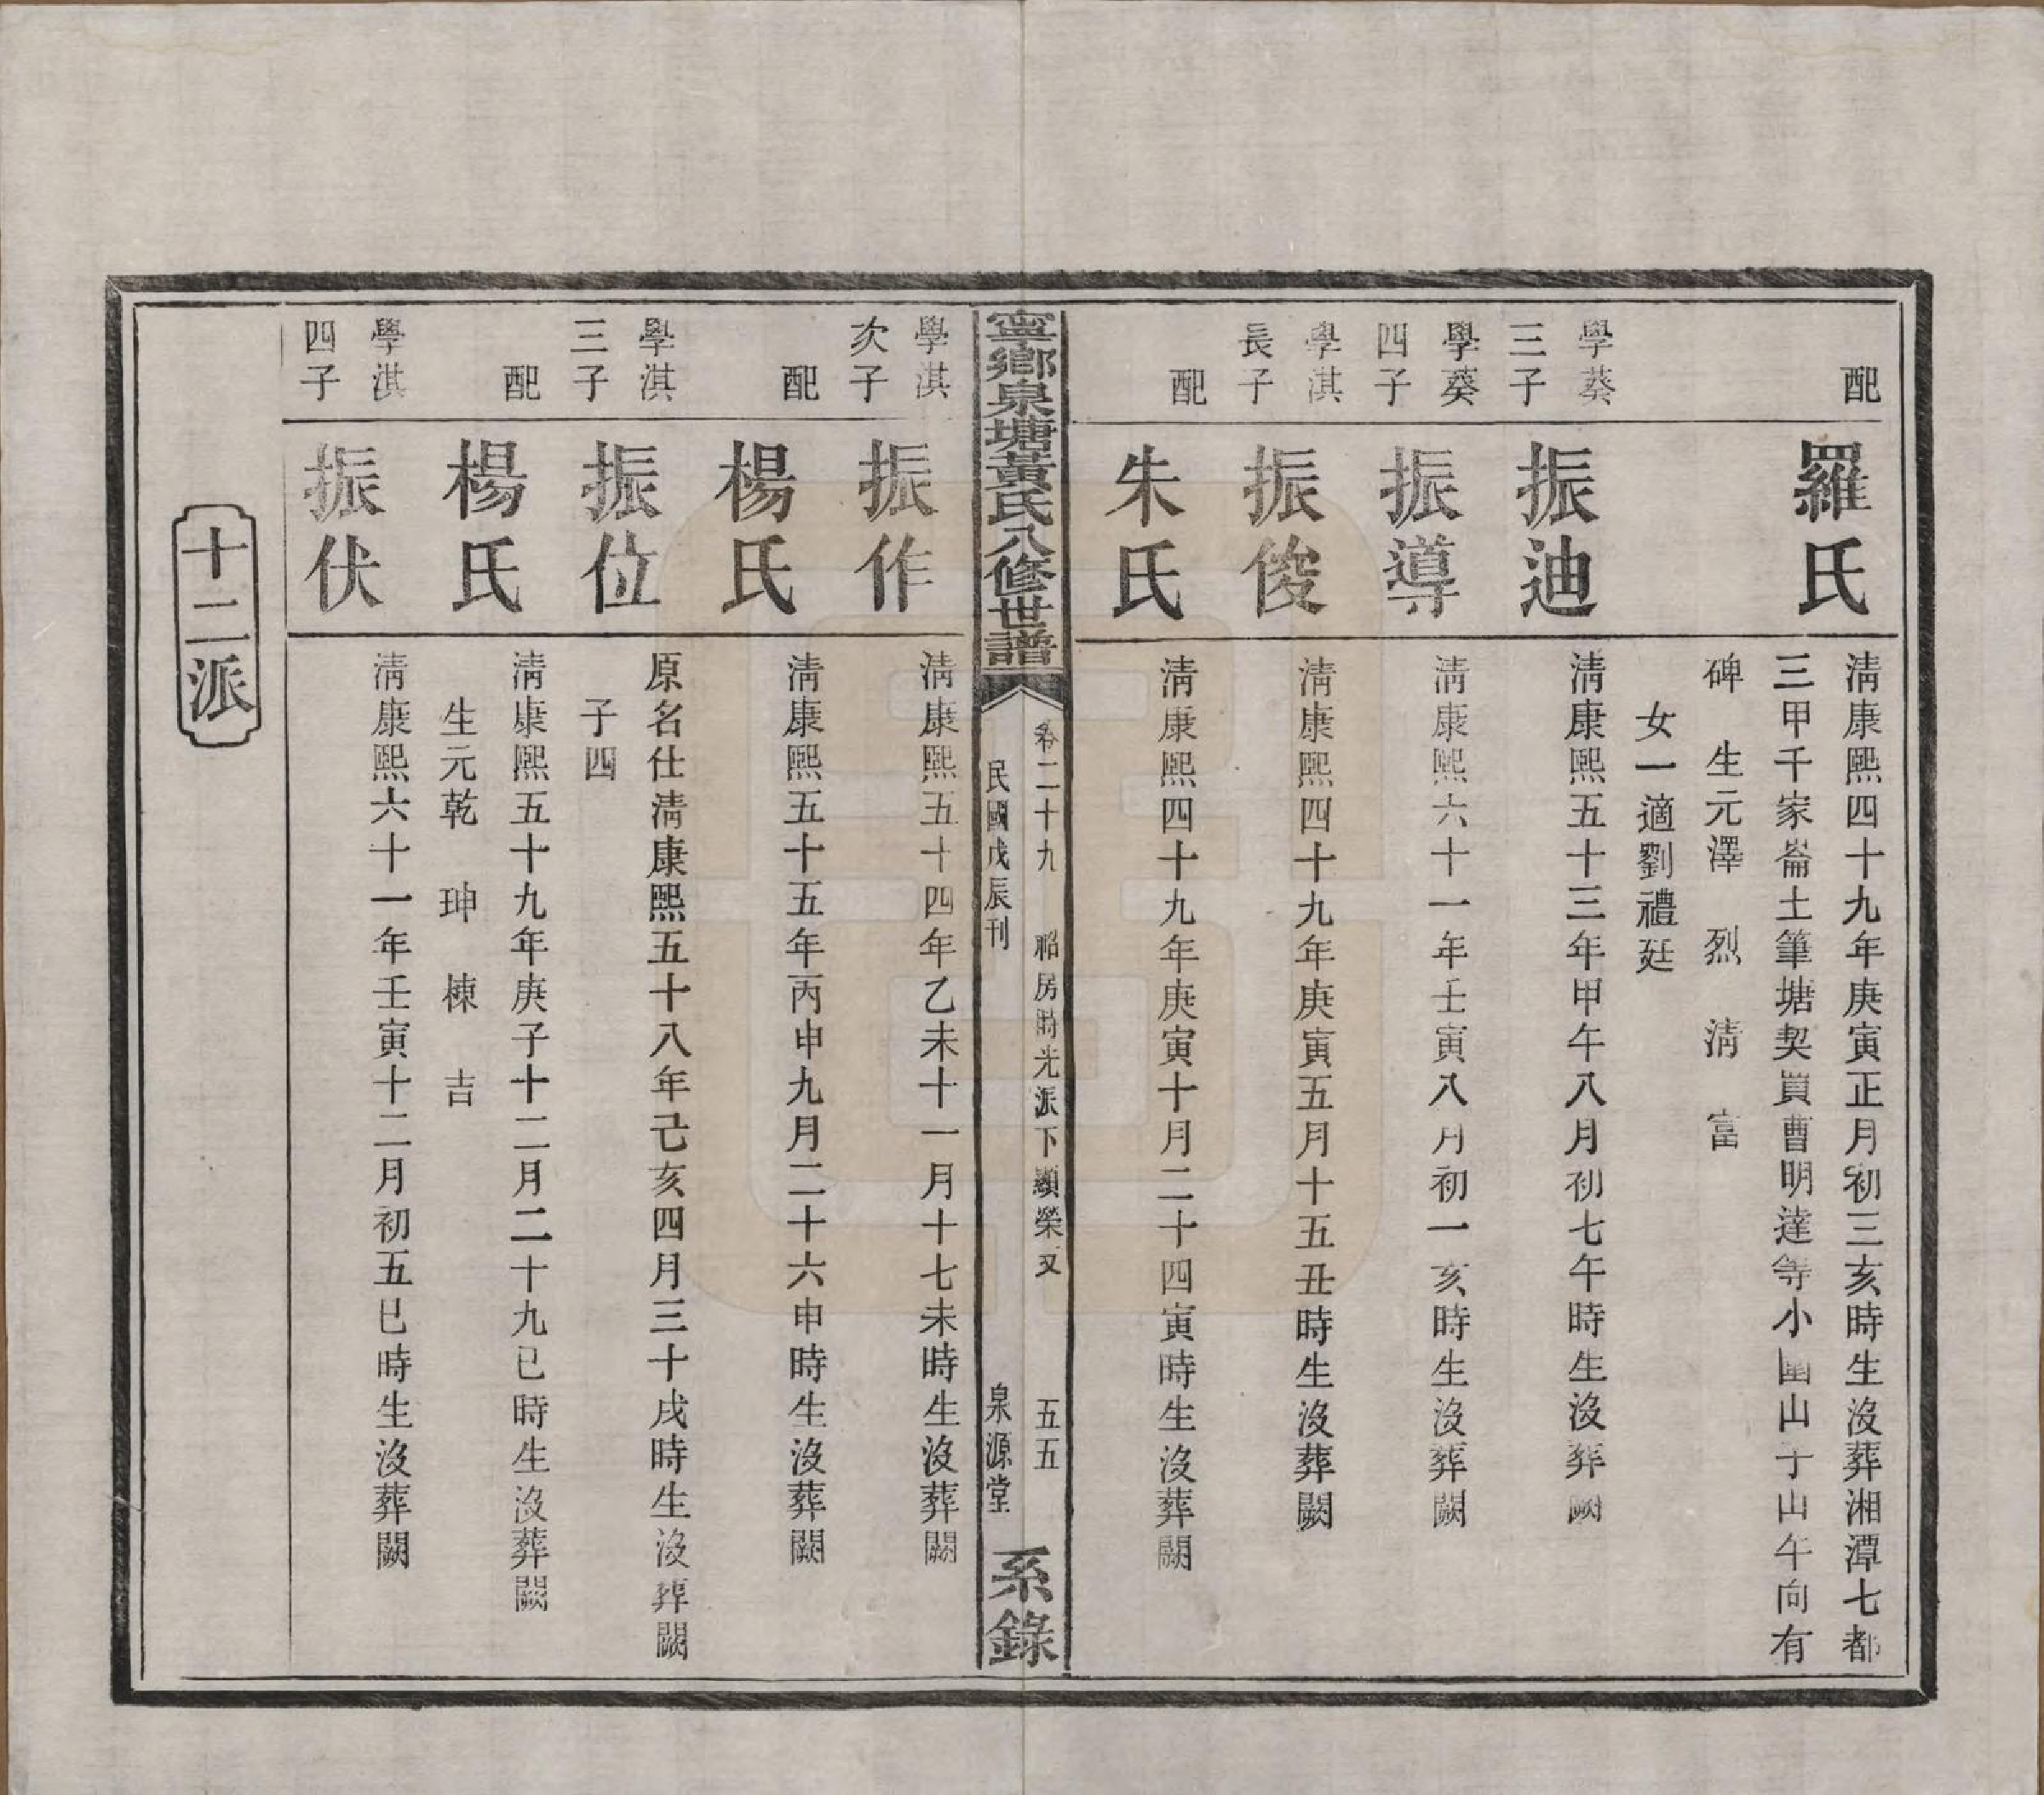 配
羅氏
淸康熙四十九年庚寅正月初三亥時生沒葬湘潭七都
三甲千家崙土筆塘契買曹明達等小圍山子山午向有
碑 生元澤 烈 淸 富
女一適劉禮廷
學葵
三子
振迪
淸康熙五十三年甲午八月初七午時生沒葬闕
學葵
四子
振導
淸康熙六十一年壬寅八月初一亥時生沒葬闕
學淇
長子
振俊
淸康熙四十九年庚寅五月十五丑時生沒葬闕
配
朱氏
淸康熙四十九年庚寅十月二十四寅時生沒葬闕
寧鄉泉塘黃氏八修世譜
卷二十九 昭房時光派下顯榮又 五五
民國戊辰刊 泉源堂
系錄
學淇
次子
振作
淸康熙五十四年乙未十一月十七未時生沒葬闕
配
楊氏
淸康熙五十五年丙申九月二十六申時生沒葬闕
學淇
三子
振位
原名仕淸康熙五十八年己亥四月三十戌時生沒葬闕
子四
配
楊氏
淸康熙五十九年庚子十二月二十九巳時生沒葬闕
生元乾 珅 棟 吉
學淇
四子
振伏
淸康熙六十一年壬寅十二月初五巳時生沒葬闕
十二派